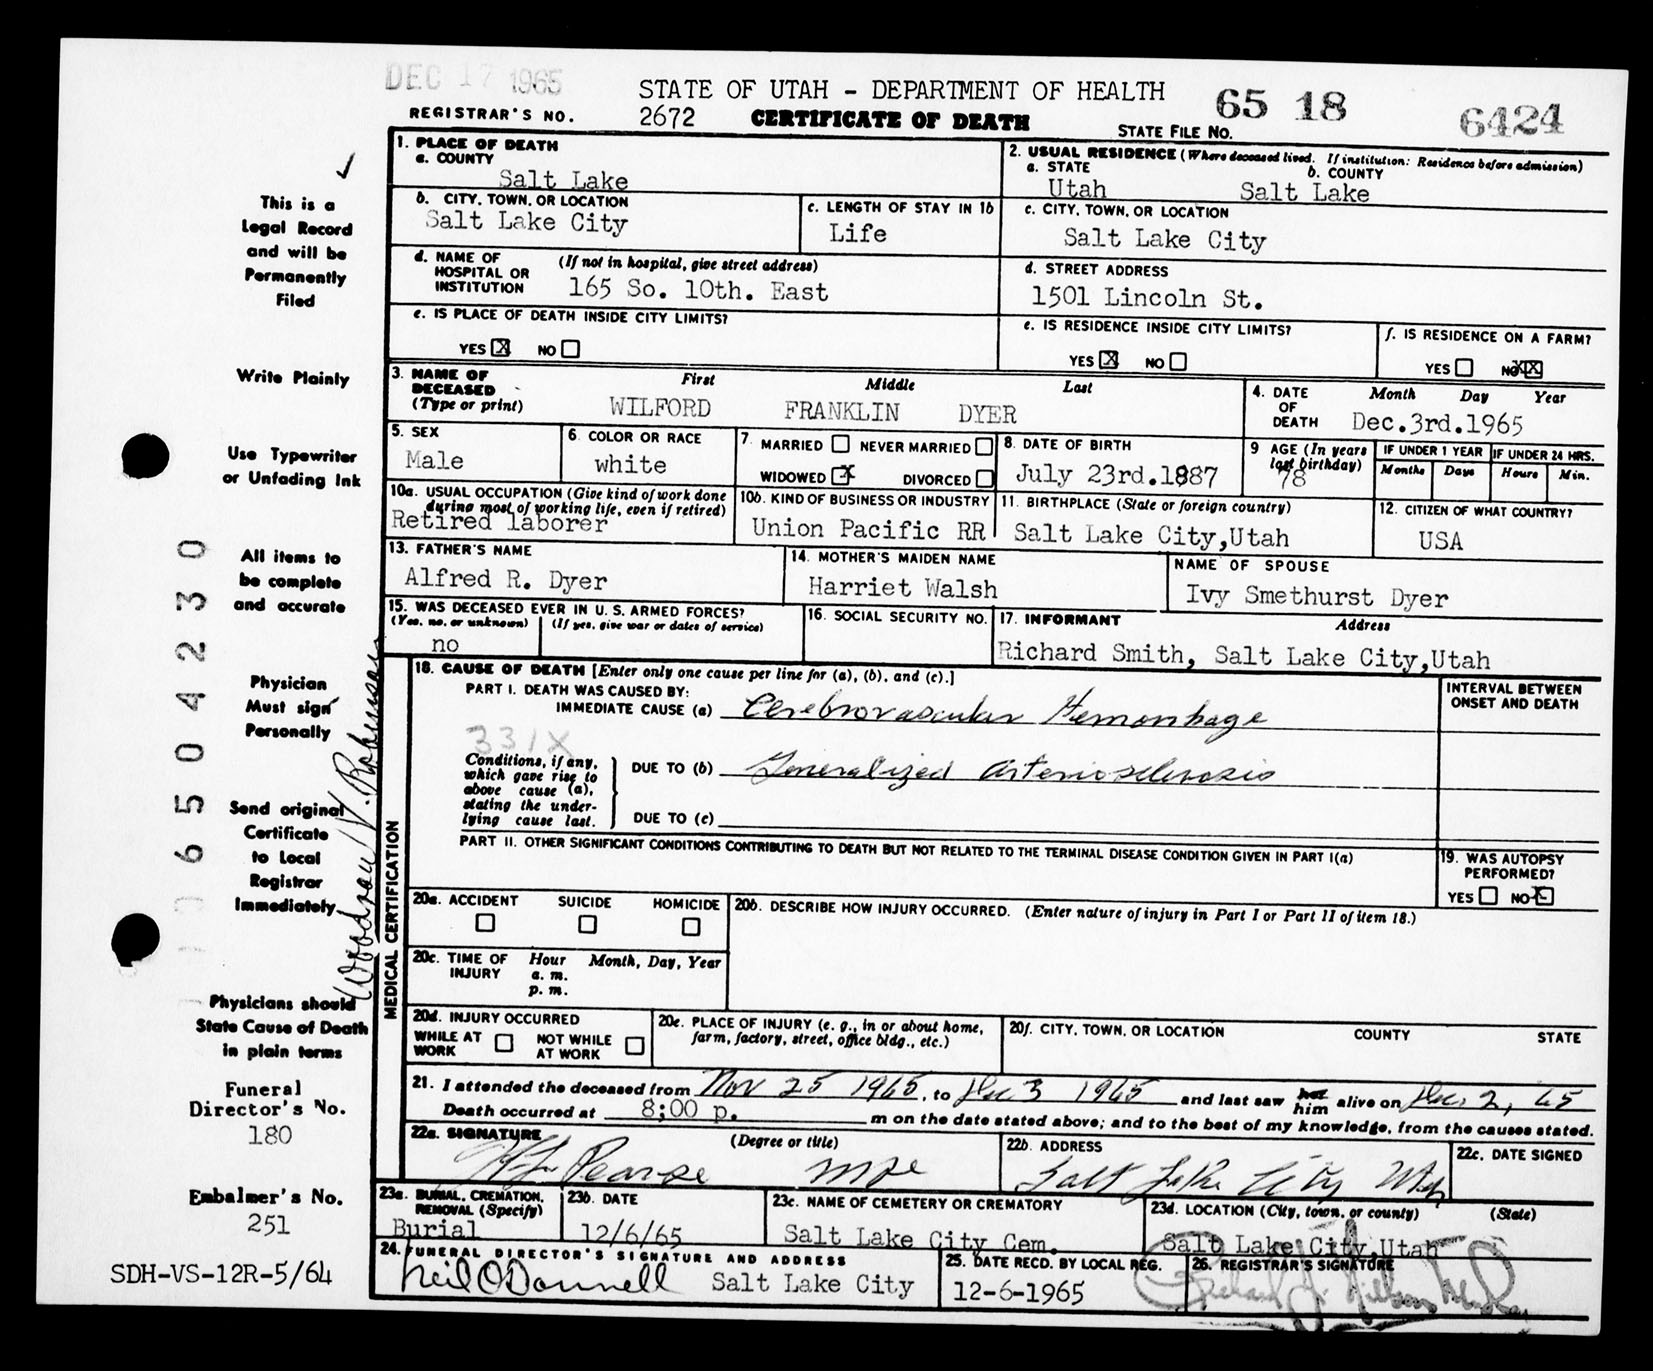 DEC 17 1965
STATE OF UTAH - DEPARTMENT OF HEALTH
65 18 6424
REGISTRAR'S NO. 2672 CERTIFICATE OF DEATH STATE FILE NO.
This is a
Legal Record
and will be
Permanently
Filed
Write Plainly
Use Typewriter
or Unfading Ink
All items to
be complete
and accurate
Physician
Must sign
Personally
Send original
Certificate
to Local
Registrar
Immediately
Physicians should
State Cause of Death
in plain terms
Funeral
Director's No.
180
Embalmer's No.
251
SDH-VS-12R-5/64
0650 4230
Woodrow W. Robinson
1. PLACE OF DEATH
a. COUNTY
Salt Lake
2. USUAL RESIDENCE (Where deceased lived. If institution: Residence before admission)
a. STATE b. COUNTY
Utah Salt Lake
b. CITY, TOWN, OR LOCATION
Salt Lake City
c. LENGTH OF STAY IN 1b
Life
c. CITY, TOWN, OR LOCATION
Salt Lake City
d. NAME OF HOSPITAL OR INSTITUTION (If not in hospital, give street address)
165 So. 10th. East
d. STREET ADDRESS
1501 Lincoln St.
e. IS PLACE OF DEATH INSIDE CITY LIMITS?
YES X NO
e. IS RESIDENCE INSIDE CITY LIMITS?
YES X NO
f. IS RESIDENCE ON A FARM?
YES NO XX
3. NAME OF DECEASED (Type or print) First Middle Last
WILFORD FRANKLIN DYER
4. DATE OF DEATH Month Day Year
Dec.3rd.1965
5. SEX
Male
6. COLOR OR RACE
white
7. MARRIED NEVER MARRIED
WIDOWED X DIVORCED
8. DATE OF BIRTH
July 23rd.1887
9 AGE (In years last birthday)
78
IF UNDER 1 YEAR
Months Days
IF UNDER 24 HRS.
Hours Min.
10a. USUAL OCCUPATION (Give kind of work done during most of working life, even if retired)
Retired laborer
10b. KIND OF BUSINESS OR INDUSTRY
Union Pacific RR
11. BIRTHPLACE (State or foreign country)
Salt Lake City,Utah
12. CITIZEN OF WHAT COUNTRY?
USA
13. FATHER'S NAME
Alfred R. Dyer
14. MOTHER'S MAIDEN NAME
Harriet Walsh
NAME OF SPOUSE
Ivy Smethurst Dyer
15. WAS DECEASED EVER IN U. S. ARMED FORCES?
(Yes, no, or unknown) (If yes, give war or dates of service)
no
16. SOCIAL SECURITY NO.
17. INFORMANT Address
Richard Smith, Salt Lake City,Utah
MEDICAL CERTIFICATION
18. CAUSE OF DEATH [Enter only one cause per line for (a), (b), and (c).]
PART I. DEATH WAS CAUSED BY:
IMMEDIATE CAUSE (a) Cerebrovascular Hemorrhage
331X
Conditions, if any, which gave rise to above cause (a), stating the underlying cause last.
DUE TO (b) Generalized Arteriosclerosis
DUE TO (c)
INTERVAL BETWEEN ONSET AND DEATH
PART II. OTHER SIGNIFICANT CONDITIONS CONTRIBUTING TO DEATH BUT NOT RELATED TO THE TERMINAL DISEASE CONDITION GIVEN IN PART I(a)
19. WAS AUTOPSY PERFORMED?
YES NO X
20a. ACCIDENT SUICIDE HOMICIDE
20b. DESCRIBE HOW INJURY OCCURRED. (Enter nature of injury in Part I or Part II of item 18.)
20c. TIME OF INJURY Hour Month, Day, Year
a. m.
p. m.
20d. INJURY OCCURRED
WHILE AT WORK NOT WHILE AT WORK
20e. PLACE OF INJURY (e. g., in or about home, farm, factory, street, office bldg., etc.)
20f. CITY, TOWN, OR LOCATION COUNTY STATE
21. I attended the deceased from Nov 25 1965, to Dec 3 1965 and last saw her him alive on Dec. 2, 65
Death occurred at 8;00 p. m on the date stated above; and to the best of my knowledge, from the causes stated.
22a. SIGNATURE (Degree or title)
Pearse
22b. ADDRESS
Salt Lake City Utah
22c. DATE SIGNED
23a. BURIAL, CREMATION, REMOVAL (Specify)
Burial
23b. DATE
12/6/65
23c. NAME OF CEMETERY OR CREMATORY
Salt Lake City Cem.
23d. LOCATION (City, town, or county) (State)
Salt Lake City,Utah
24. FUNERAL DIRECTOR'S SIGNATURE AND ADDRESS
Neil O'Donnell Salt Lake City
25. DATE RECD. BY LOCAL REG.
12-6-1965
26. REGISTRAR'S SIGNATURE